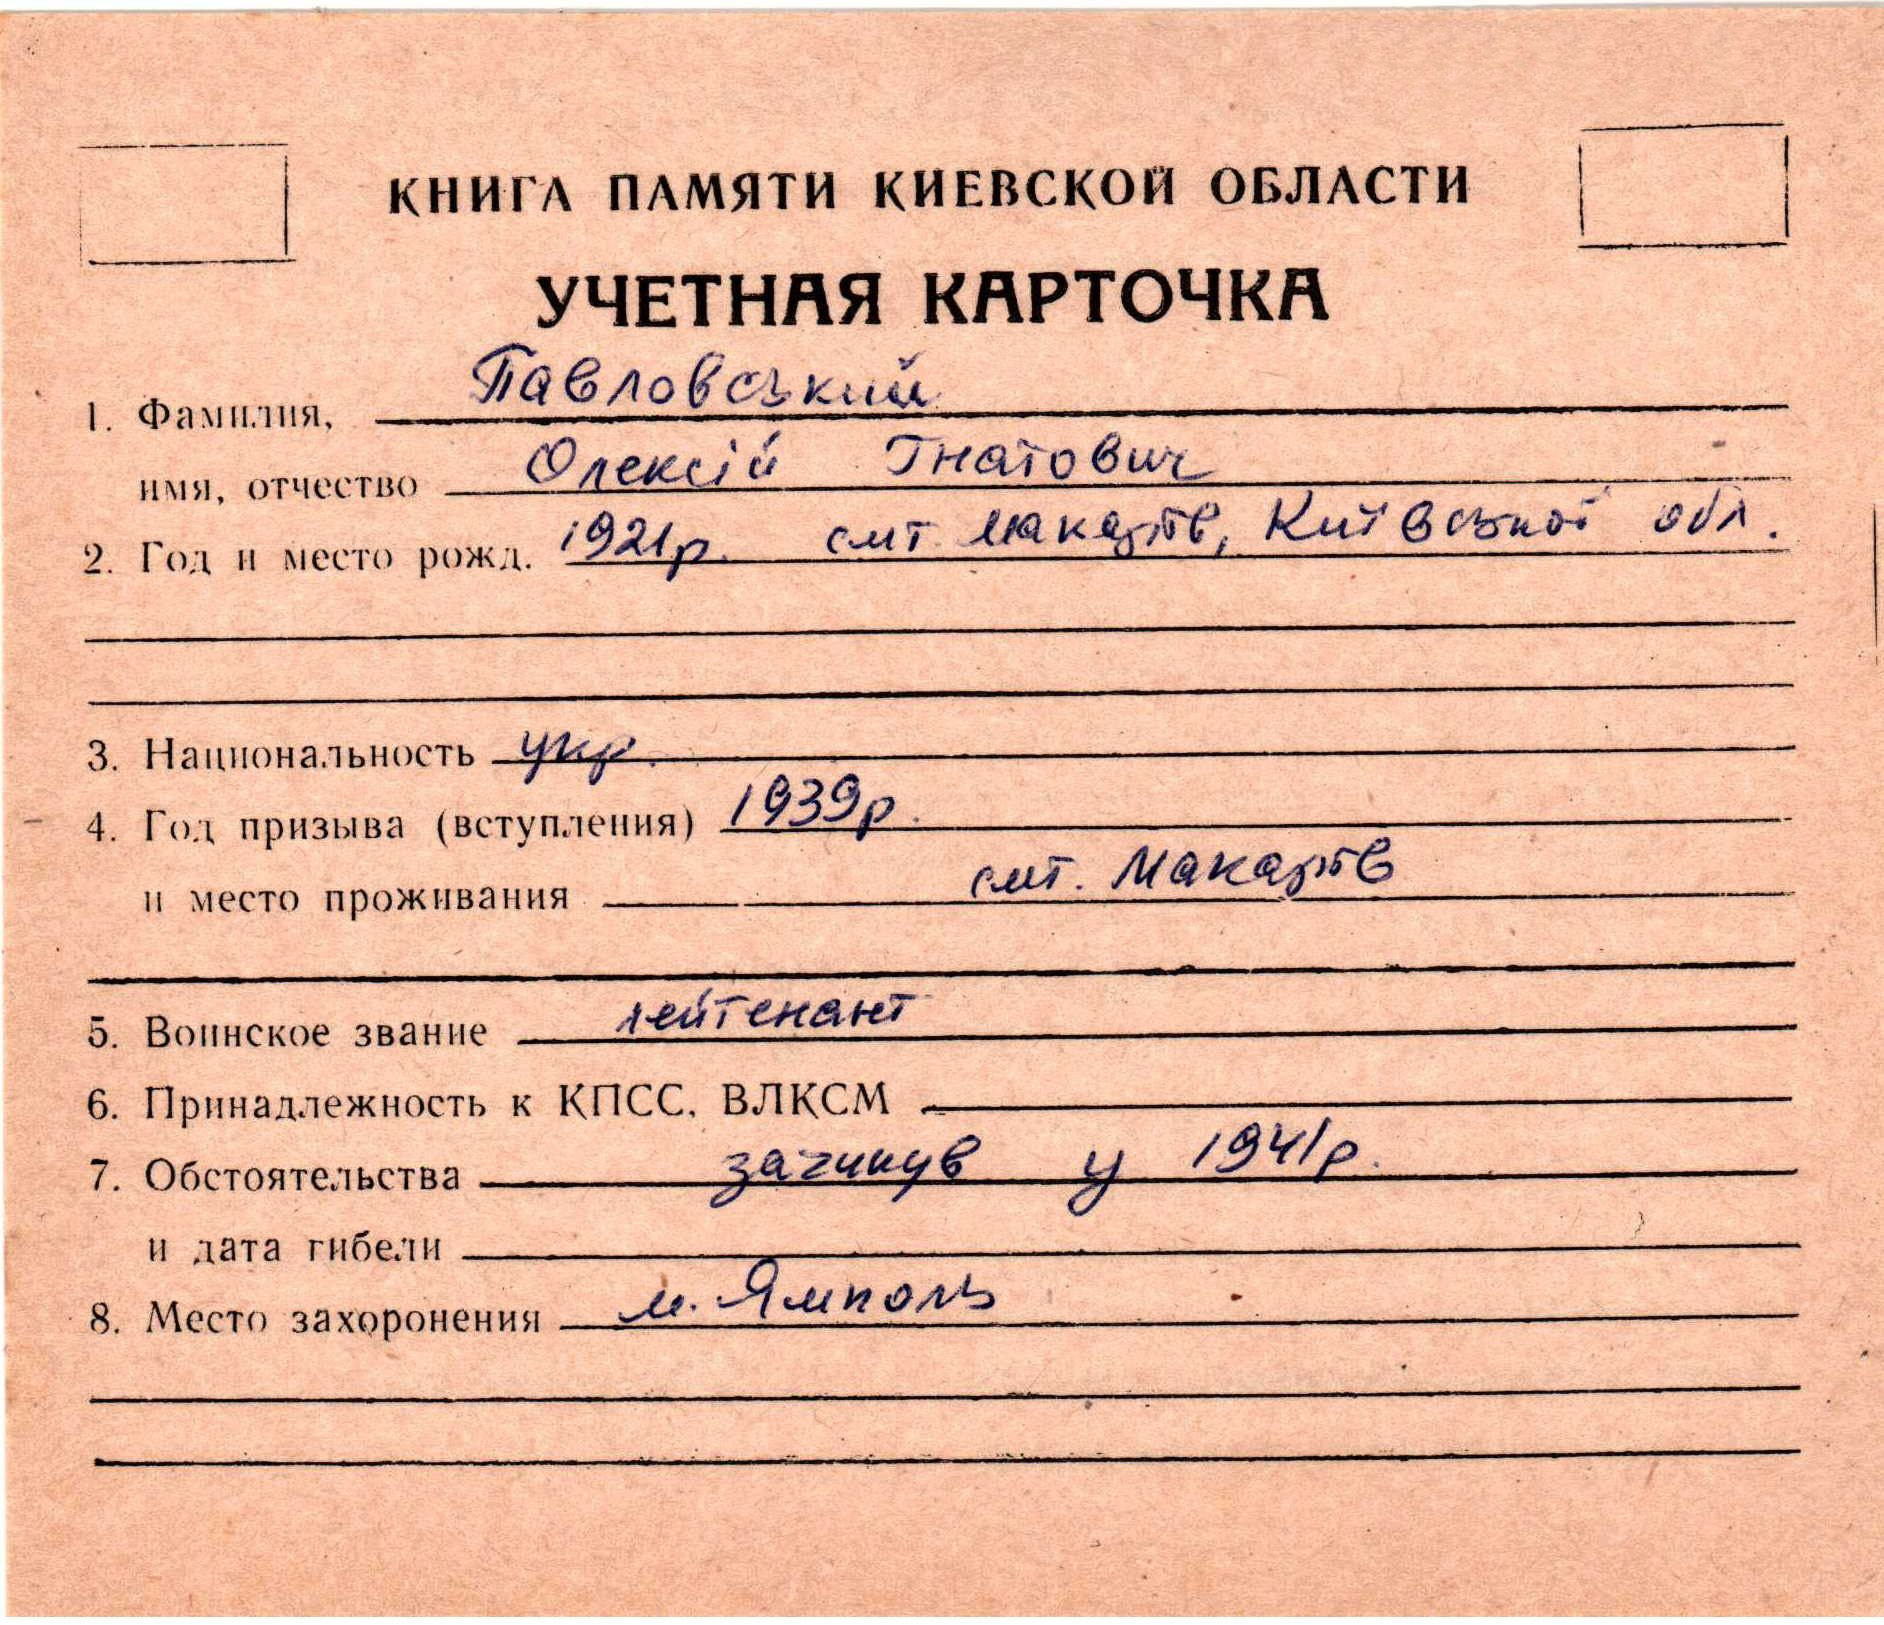 КНИГА ПАМЯТИ КИЕВСКОЙ ОБЛАСТИ
УЧЕТНАЯ КАРТОЧКА
1. Фамилия, Павловський
имя, отчество Олексій Гнатович
2. Год и место рожд. 1921р. смт Макарів, Київської обл.
3. Национальность укр.
4. Год призыва (вступления) 1939р.
и место проживания смт. Макарів
5. Воинское звание лейтенант
6. Принадлежность к КПСС, ВЛКСМ
7. Обстоятельства загинув у 1941р.
и дата гибели
8. Место захоронения м. Ямполь